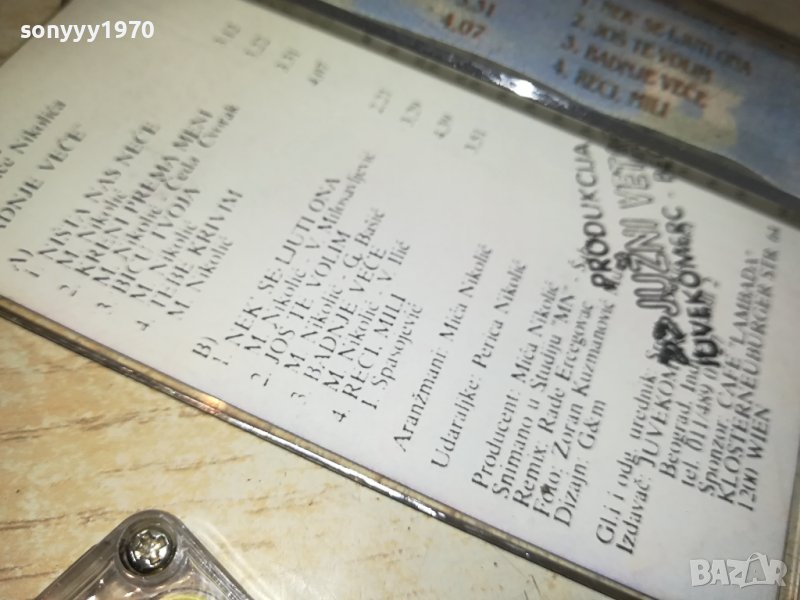 sonyyy1970
Nikolića
BADNJE VEČE"
A)
1. NIŠTA NAS NEĆE
M. Nikolić
2. KRENI PREMA MENI
M. Nikolić - Čeda Čvorak
3. BIĆU TVOJA
M. Nikolić
4. TEBE KRIVIM
M. Nikolić
3.31
4.07
B)
1. NEK' SE LJUTI ONA
M. Nikolić - V. Milosavljević
2. JOŠ TE VOLIM
M. Nikolić - G. Bašić
3. BADNJE VEČE
M. Nikolić - V. Ilić
4. RECI, MILI
I. Spasojević
Aranžmani: Mića Nikolić
Udaraljke: Perica Nikolić
Producent: Mića Nikolić
Snimano u Studiju "MN"
Remix: Rade Ercegovac
Foto: Zoran Kuzmanović
Dizajn: G&m
Gl. i odg. urednik:
Izdavač: JUVEKO
Beograd,
tel. 011/489
Sponzor: CAFE "LAMBADA"
KLOSTERNEUBURGER STR 64
1200 WIEN
PRODUKCIJA
JUŽNI VET
JUVEKOMERC
3.31
4.07
1. NEK' SE LJUTI ONA
2. JOŠ TE VOLIM
3. BADNJE VEČE
4. RECI, MILI
BAZAR